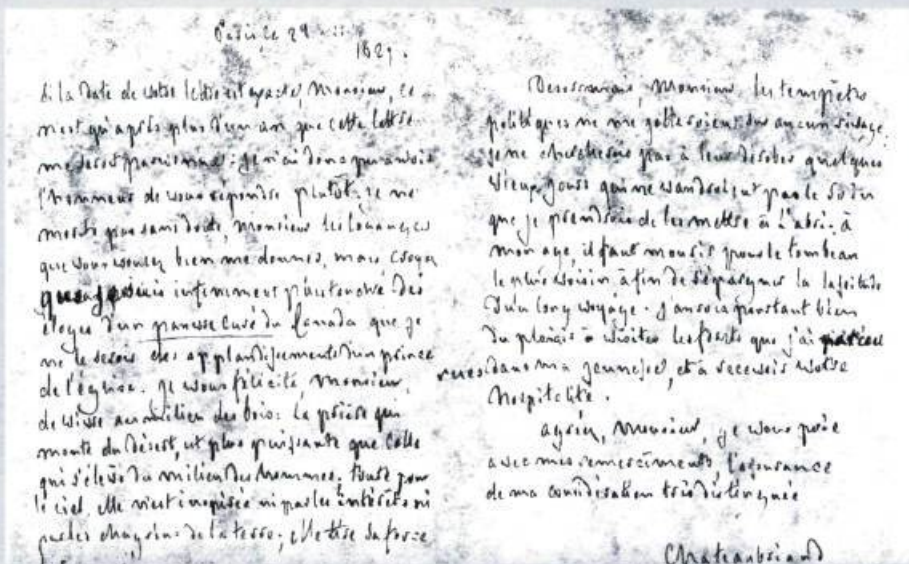 Paris, ce 29
1827.
Si la date de votre lettre est exacte, Monsieur, ce
n'est qu'après plus d'un an que cette lettre
me seroit parvenue: je n'ai donc pu avoir
l'honneur de vous répondre plutôt. Je ne
mérite pas sans doute, Monsieur les louanges
que vous voulez bien me donner, mais croyez
que je suis infiniment plus touché des
éloges d'un pauvre curé du Canada que je
ne le serois des applaudissements d'un prince
de l'église. Je vous félicite Monsieur,
de vivre au milieu des bois: la prière qui
monte du désert, est plus puissante que celle
qui s'élève du milieu des hommes, toute pour
le ciel, elle n'est inspirée ni par les intérêts ni
par les chagrins de la terre; elle tire sa force
Desormais, Monsieur les tempêtes
politiques ne me jetteroient sur aucun rivage,
je ne chercherois pas à leur dérober quelques
vieux jours qui ne vaudroient pas le soin
que je prendrois de les mettre à l'abri. à
mon age, il faut mourir pour le tombeau
le plus voisin à fin de s'épargner la lassitude
d'un long voyage. J'aurois pourtant bien
du plaisir à visiter les forêts que j'ai parcou
rues dans ma jeunesse, et à recevoir votre
hospitalité.
agréez, Monsieur, je vous prie
avec mes remerciments, l'assurance
de ma considération très distinguée
Chateaubriand